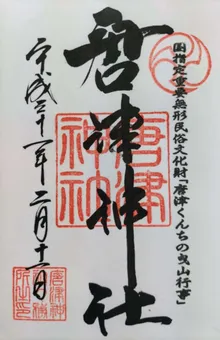 国指定重要無形民俗文化財「唐津くんちの曳山行事」
唐津神社
唐津
神社
平成三十一年二月十一日
唐津神
社務
所之印